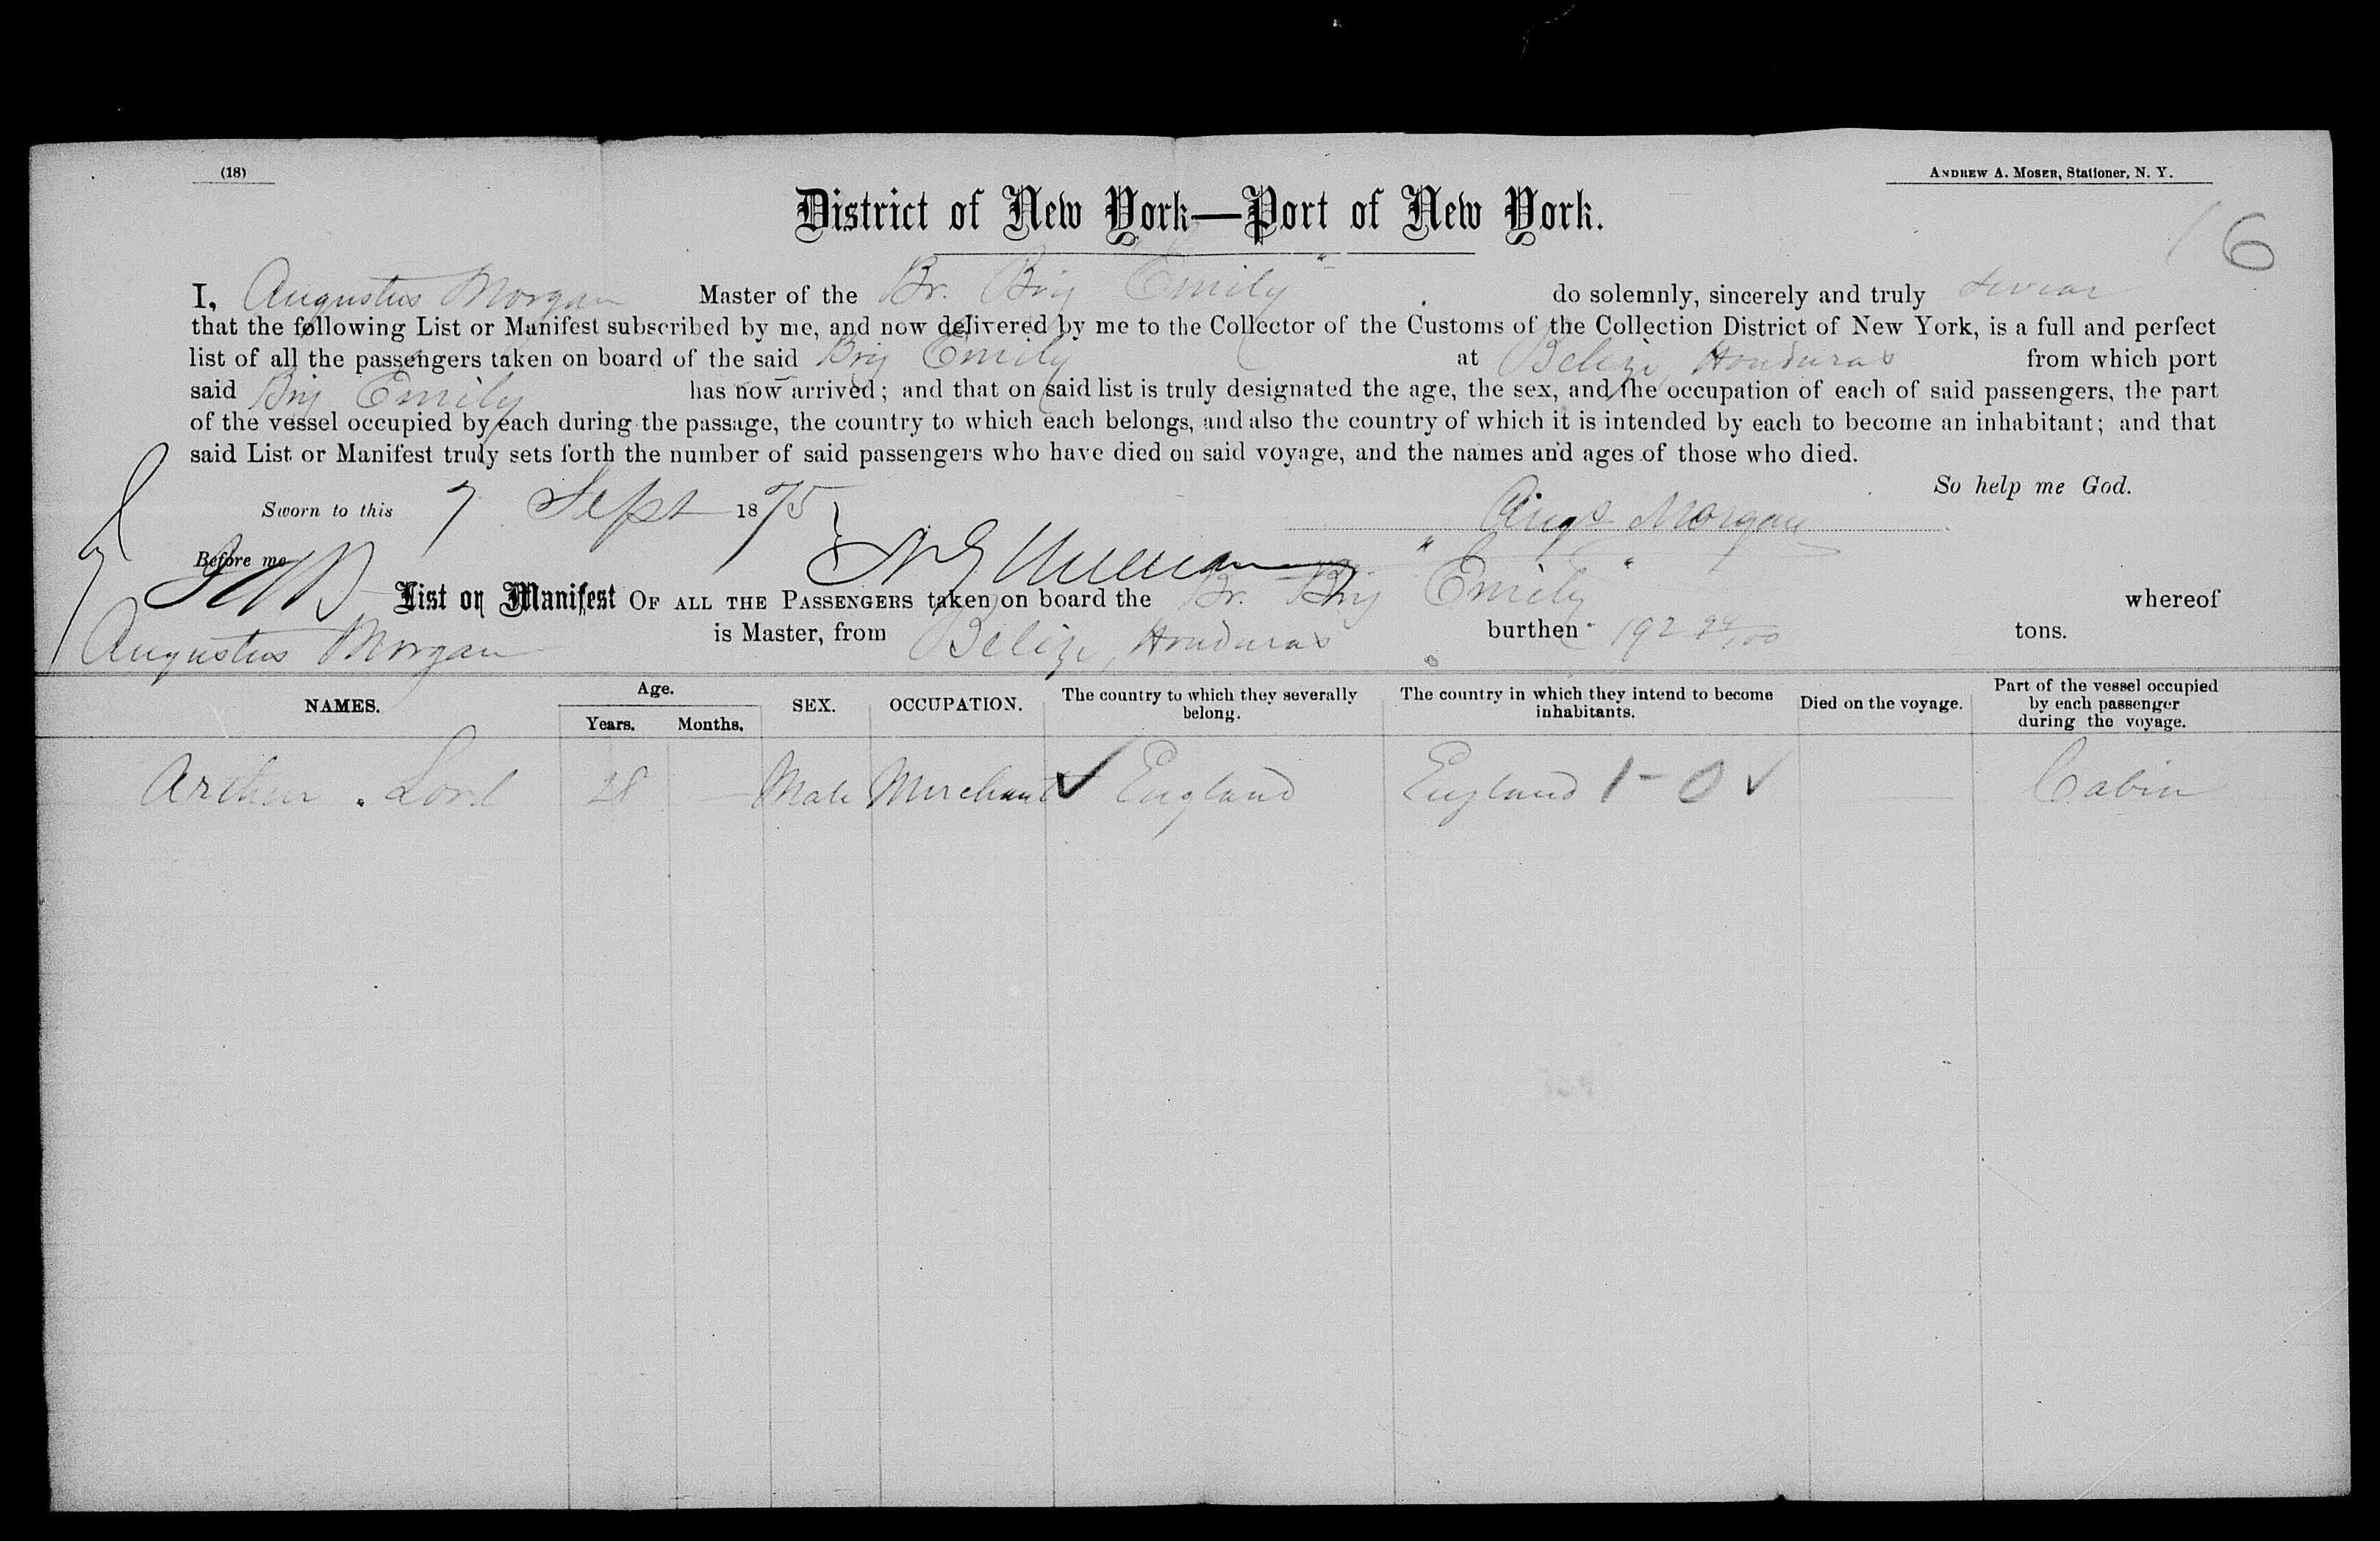 (18)
ANDREW A. MOSER, Stationer, N. Y.
District of New York—Port of New York.
6
I, Augustus Morgan Master of the Br. Brig "Emily" do solemnly, sincerely and truly swear
that the following List or Manifest subscribed by me, and now delivered by me to the Collector of the Customs of the Collection District of New York, is a full and perfect
list of all the passengers taken on board of the said Brig Emily at Belize, Honduras from which port
said Brig Emily has now arrived; and that on said list is truly designated the age, the sex, and the occupation of each of said passengers, the part
of the vessel occupied by each during the passage, the country to which each belongs, and also the country of which it is intended by each to become an inhabitant; and that
said List or Manifest truly sets forth the number of said passengers who have died on said voyage, and the names and ages of those who died.
So help me God.
Sworn to this 7 Sept 1875 Augs Morgan
Before me
List or Manifest OF ALL THE PASSENGERS taken on board the Br. Brig "Emily" whereof
Augustus Morgan is Master, from Belize, Honduras burthen 192 94/100 tons.
NAMES. Age. Years. Months. SEX. OCCUPATION. The country to which they severally belong. The country in which they intend to become inhabitants. Died on the voyage. Part of the vessel occupied by each passenger during the voyage.
Arthur Lord 28 — Male Merchant ✓ England England 1 - 0 ✓ — Cabin